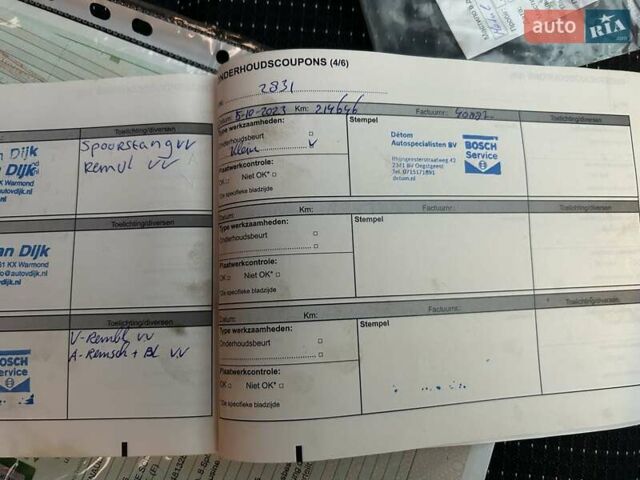 auto RIA.com
ONDERHOUDSCOUPONS (4/6)
2831
Datum: 5-10-2023 Km: 214646 Factuurnr.:
Type werkzaamheden:
Onderhoudsbeurt
Klein V
Plaatwerkcontrole:
OK Niet OK*
*Zie specifieke bladzijde
Stempel
Détom
Autospecialisten BV
Rhijngeesterstraatweg 42
2341 BV Oegstgeest
Tel. 0715171891
detom.nl
BOSCH
Service
Toelichting/diversen
Datum: Km: Factuurnr.:
Type werkzaamheden:
Onderhoudsbeurt
Plaatwerkcontrole:
OK Niet OK*
*Zie specifieke bladzijde
Stempel
Toelichting/diversen
Datum: Km: Factuurnr.:
Type werkzaamheden:
Onderhoudsbeurt
Plaatwerkcontrole:
OK Niet OK*
*Zie specifieke bladzijde
Stempel
Toelichting/diversen
Toelichting/diversen
Spoorstang VV
Remvl VV
an Dijk
n Dijk
KX Warmond
ovdijk.nl
utovdijk.nl
Toelichting/diversen
an Dijk
61 KX Warmond
fo@autovdijk.nl
tovdijk.nl
Toelichting/diversen
V-Rembl VV
A-Remsch + Bl VV
BOSCH
Service